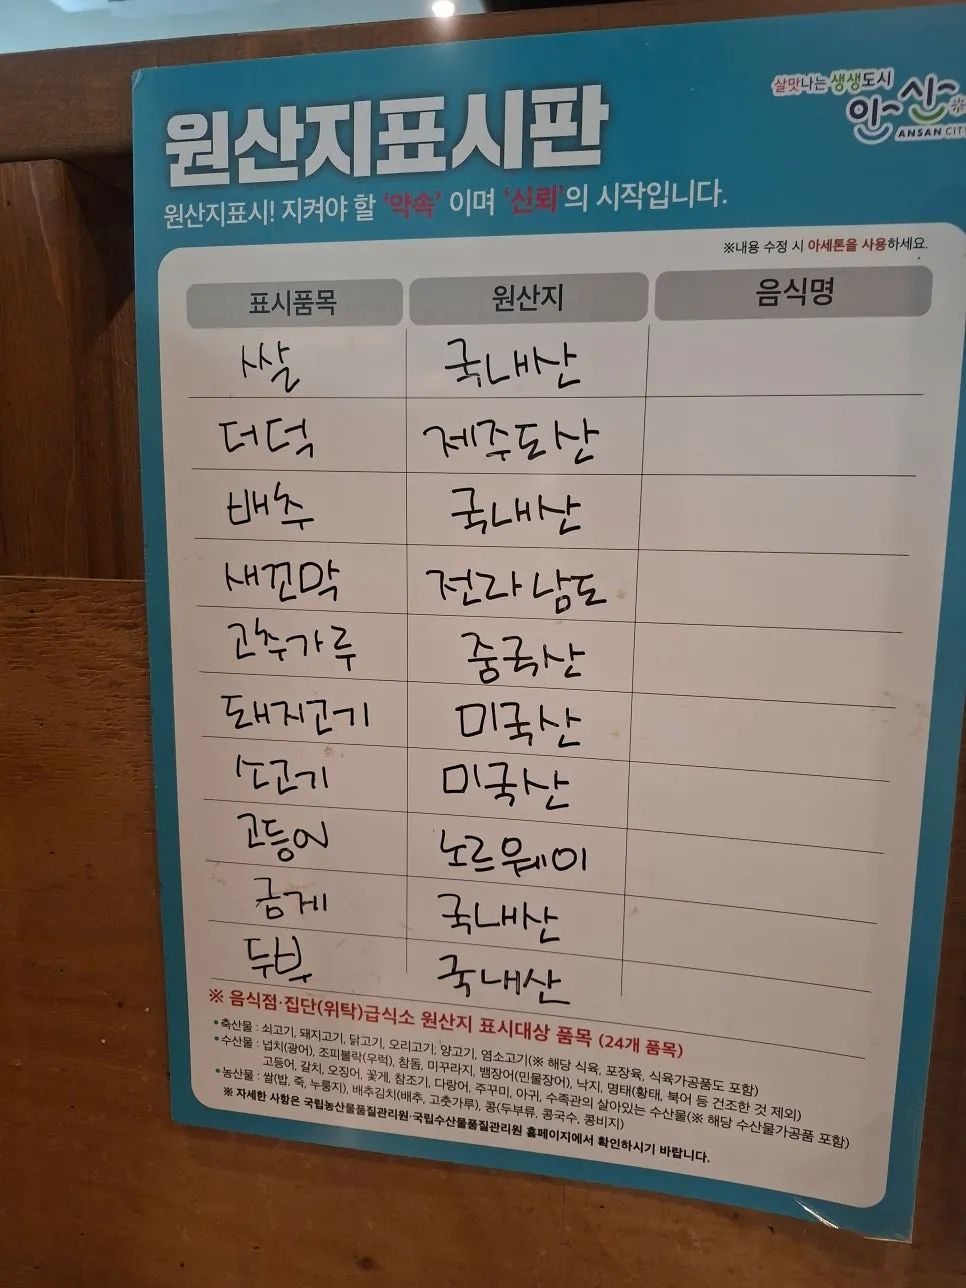 살맛나는 생생도시
안산
ANSAN CITY
원산지표시판
원산지표시! 지켜야 할 '약속' 이며 '신뢰'의 시작입니다.
※내용 수정 시 아세톤을 사용하세요.
표시품목 원산지 음식명
쌀 국내산
더덕 제주도산
배추 국내산
새꼬막 전라남도
고추가루 중국산
돼지고기 미국산
소고기 미국산
고등어 노르웨이
금게 국내산
두부 국내산
※ 음식점·집단(위탁)급식소 원산지 표시대상 품목 (24개 품목)
•축산물 : 쇠고기, 돼지고기, 닭고기, 오리고기, 양고기, 염소고기(※ 해당 식육, 포장육, 식육가공품도 포함)
•수산물 : 넙치(광어), 조피볼락(우럭), 참돔, 미꾸라지, 뱀장어(민물장어), 낙지, 명태(황태, 북어 등 건조한 것 제외)
고등어, 갈치, 오징어, 꽃게, 참조기, 다랑어, 주꾸미, 아귀, 수족관의 살아있는 수산물(※ 해당 수산물가공품 포함)
•농산물 : 쌀(밥, 죽, 누룽지), 배추김치(배추, 고춧가루), 콩(두부류, 콩국수, 콩비지)
※ 자세한 사항은 국립농산물품질관리원·국립수산물품질관리원 홈페이지에서 확인하시기 바랍니다.